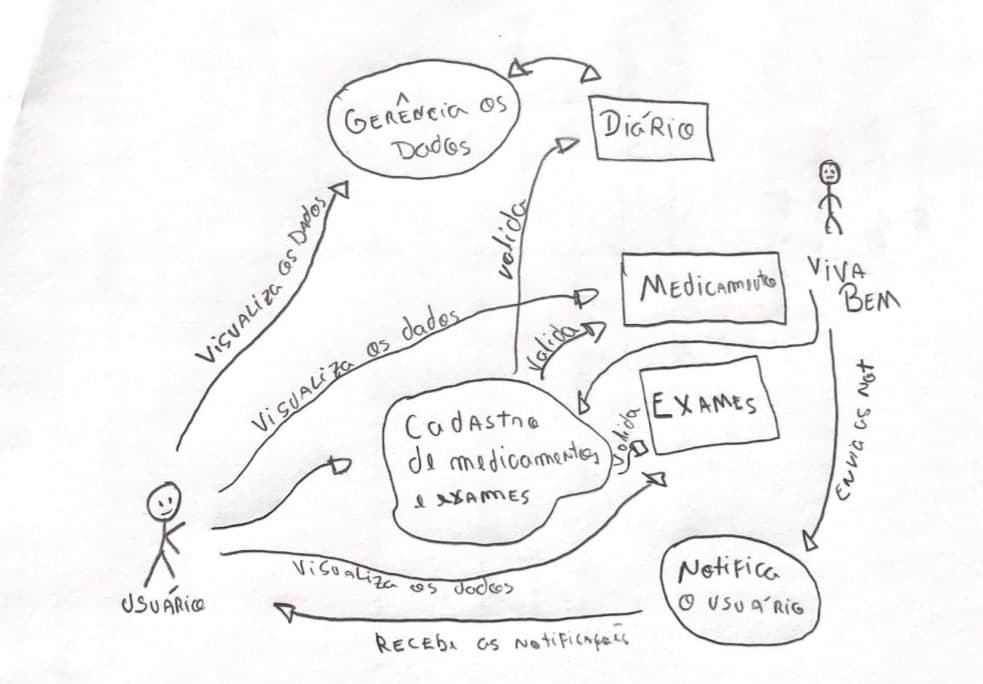 GERÊNCIA OS
DADOS
DIÁRIO
VISUALIZA OS DADOS
valida
MEDICAMNUTO
VIVA
BEM
VISUALIZA os dados
valida
EXAMES
CADASTRO
de medicamentos
e EXAMES
valida
ENVIA AS NOT
VISUALIZA os dados
NOTIFICA
O USUÁRIO
USUÁRIO
RECEBE AS NOTIFICAÇÕES